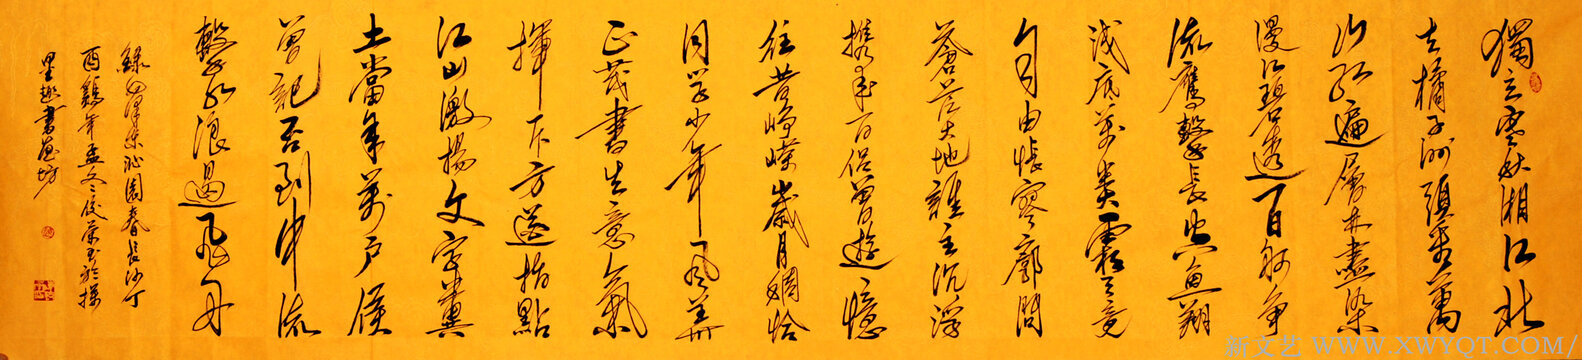 獨立寒秋湘江北
去橘子洲頭看萬
山红遍層林盡染
漫江碧透百舸争
流鷹擊長空魚翔
浅底萬类霜天竞
自由悵寥廓問
蒼茫大地誰主沉浮
攜来百侣曾遊憶
往昔崢嶸歲月稠恰
同学少年風華
正茂書生意氣
揮斥方遒指點
江山激揚文字糞
土當年萬户侯
曾記否到中流
擊水浪遏飛舟
錄毛澤東沁園春長沙丁
酉鷄年孟冬俊榮書於
墨趣書画坊
新文艺 WWW.XWYOT.COM/